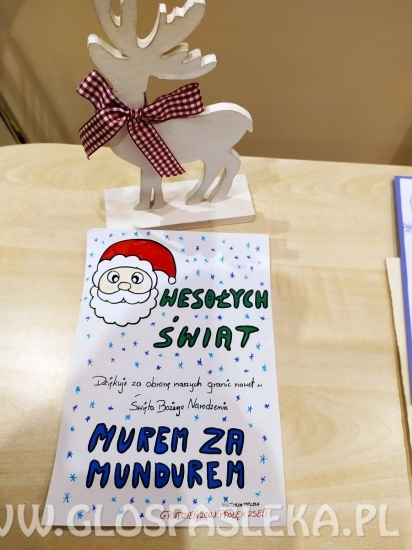 WESOŁYCH
ŚWIĄT
Dziękuję za obronę naszych granic nawet w
Święta Bożego Narodzenia
MUREM ZA
MUNDUREM
WWW.GLOSPASLEKA.PL